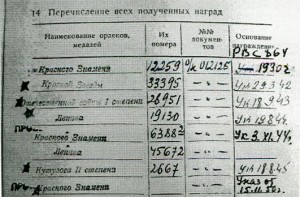 14 Перечисление всех полученных наград
Наименование орденов, медалей
Их номера
№№ документов
Основание награждения
РВС 364
Красного Знамени 12259 О/к 012125 1930г
Красной Звезды 33395 -"- Ук 29 3 42
Отечественной войны I степени 26951 -"- Ук 18 9 43
Ленина 19130 -"- Ук 19 8 44
Красного Знамени 63882 -"- Ук 3.XI.44
Ленина 45672 -"-
Кутузова II степени 2667 -"- Ук 18 8 45
Красного Знамени -"- Указ от 15.11.50г.